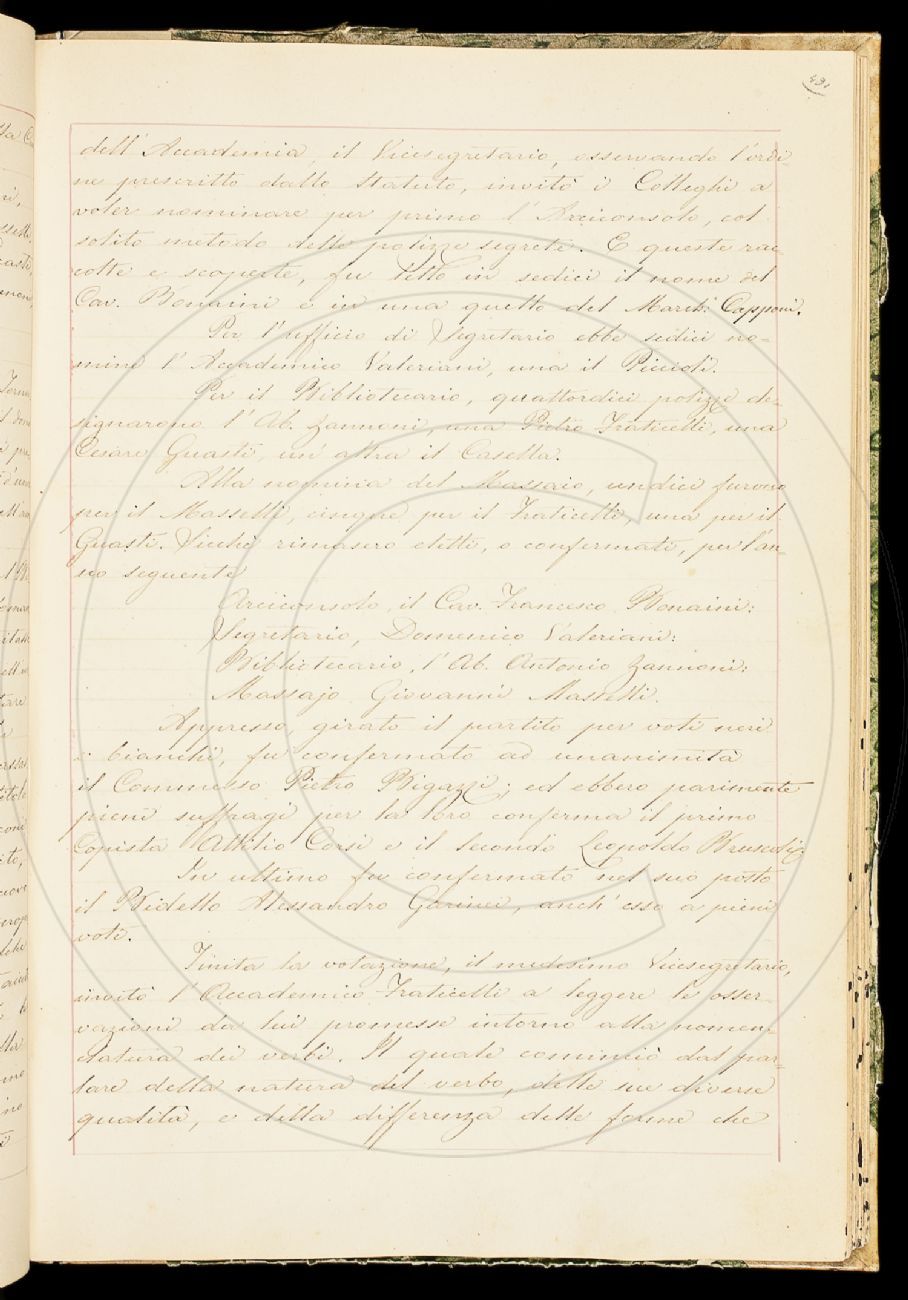 491
dell'Accademia, il Vicesegretario, osservando l'ordi-
ne prescritto dallo Statuto, invitò i Colleghi a
voler nominare per primo l'Arciconsolo, col
solito metodo delle polizze segrete. E queste rac-
colte e scoperte, fu letto in sedici il nome del
Cav. Bonaini e in una quello del March: Capponi.
Per l'ufficio di Segretario ebbe sedici no-
mine l'Accademico Valeriani, una il Piccioli.
Per il Bibliotecario, quattordici polizze de-
signarono l'Ab. Zannoni, una Pietro Fraticelli, una
Cesare Guasti, un'altra il Casella.
Alla nomina del Massaio, undici furono
per il Masselli, cinque per il Fraticelli, una per il
Guasti. Sicchè rimasero eletti, o confermati, per l'an-
no seguente
Arciconsolo, il Cav. Francesco Bonaini:
Segretario, Domenico Valeriani:
Bibliotecario, l'Ab. Antonio Zannoni:
Massajo Giovanni Masselli.
Appresso, girato il partito per voti neri
e bianchi, fu confermato ad unanimità
il Commesso Pietro Bigazzi; ed ebbero parimente
pieni suffragi per la loro conferma il primo
Copista Attilio Corsi e il secondo Leopoldo
In ultimo fu confermato nel suo posto
il Bidello Alessandro Garinei, anch'esso a pieni
voti.
Finita la votazione, il medesimo Vicesegretario,
invitò l'Accademico Fraticelli a leggere le osser-
vazioni da lui promesse intorno alla nomen-
clatura dei verbi. Il quale cominciò dal par-
lare della natura del verbo, delle sue diverse
qualità, e della differenza delle forme che